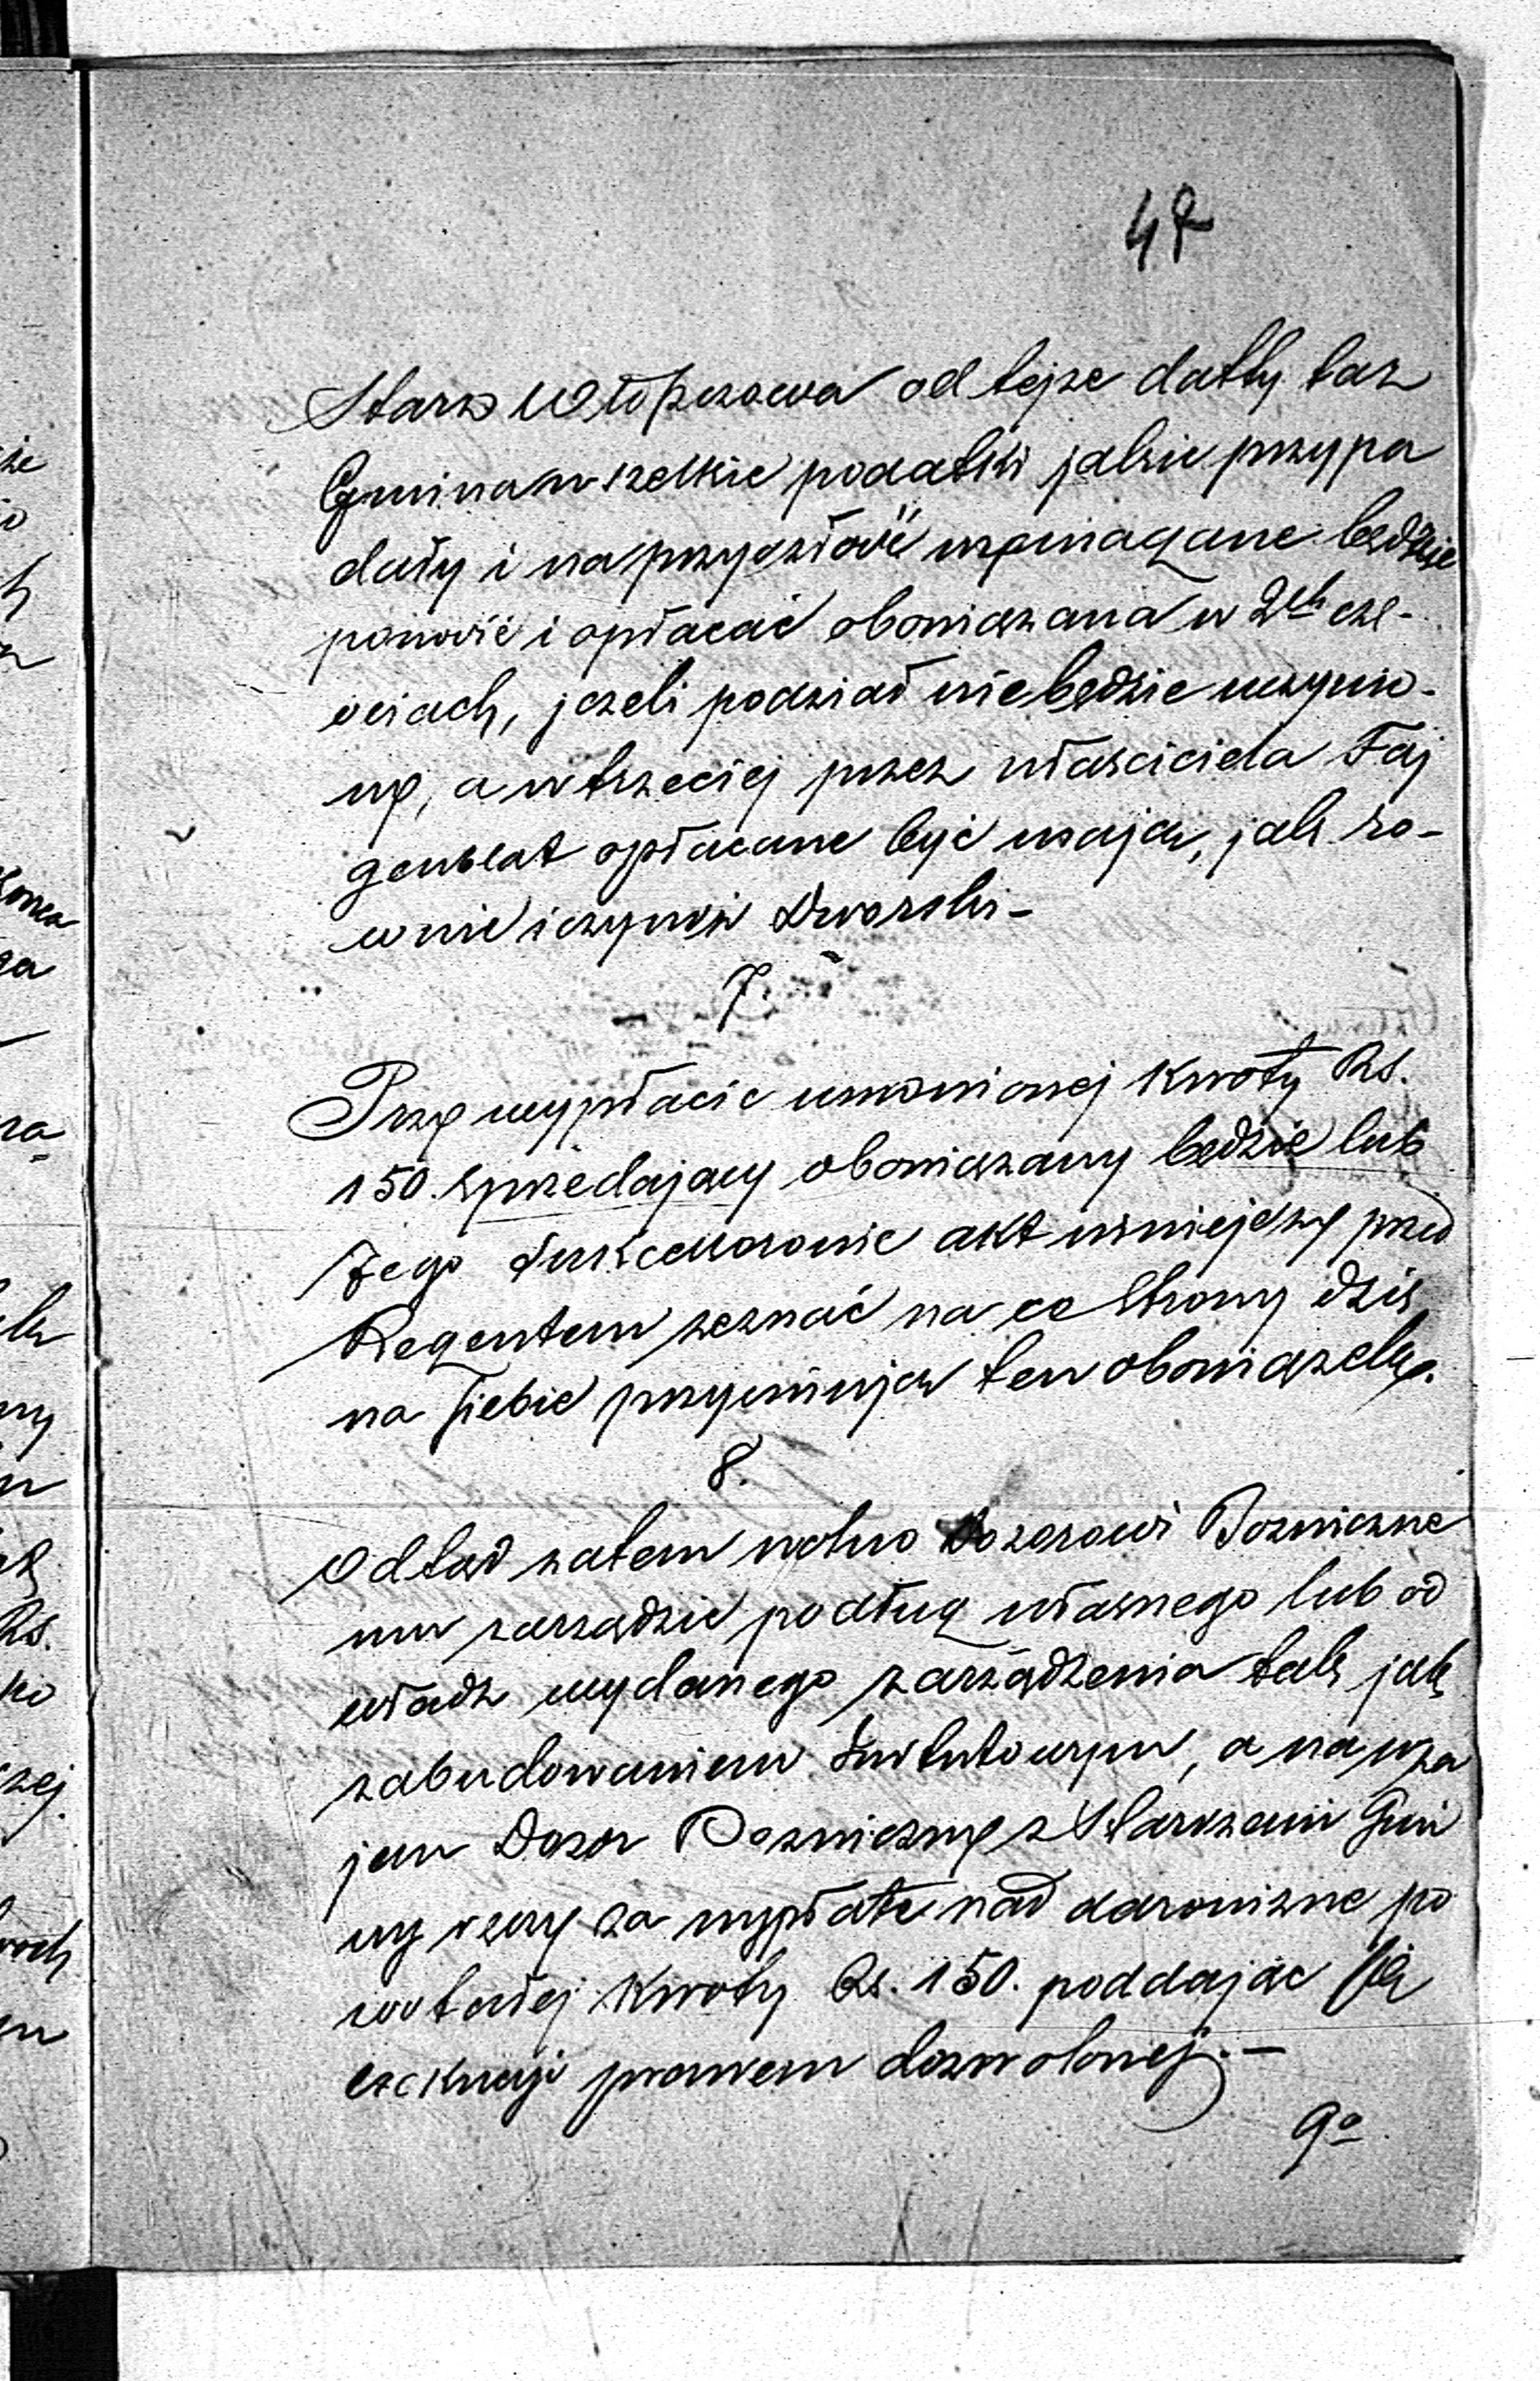 47
Staroz Włoszczowa od tejże datty taż
Gmina wszelkie podatki jakie przypa
dały i na przyszłość wymagane będzie
ponosić i opłacać obowiązana w 2ch czę-
ściach, jeżeli podział nie będzie uczynio-
ny, a w trzeciej przez właściciela Faj
genblat opłacane być mają, jak ró-
wnie i czynsz Dworski –
7.
Przy wypłacie umówionej Kwoty Rs.
150. sprzedający obowiązany będzie lub
Jego Sukcessorowie akt niniejszy przed
Regentem zeznać na co Strony dziś
na siebie przyjmują ten obowiązek.
8.
Odtąd zatem wolno Dozorowi Bożniczne
mu zarządzić podług własnego lub od
władz wydanego zarządzenia tak jak
zabudowaniem Instutowym, a na wza
jem Dozór Bożniczny z Starszemi Gmi
ny ręczy za wypłatę nad darowiznę po
zostałej Kwoty Rs. 150. poddając się
exekucyi prawem dozwolonej. –
9o